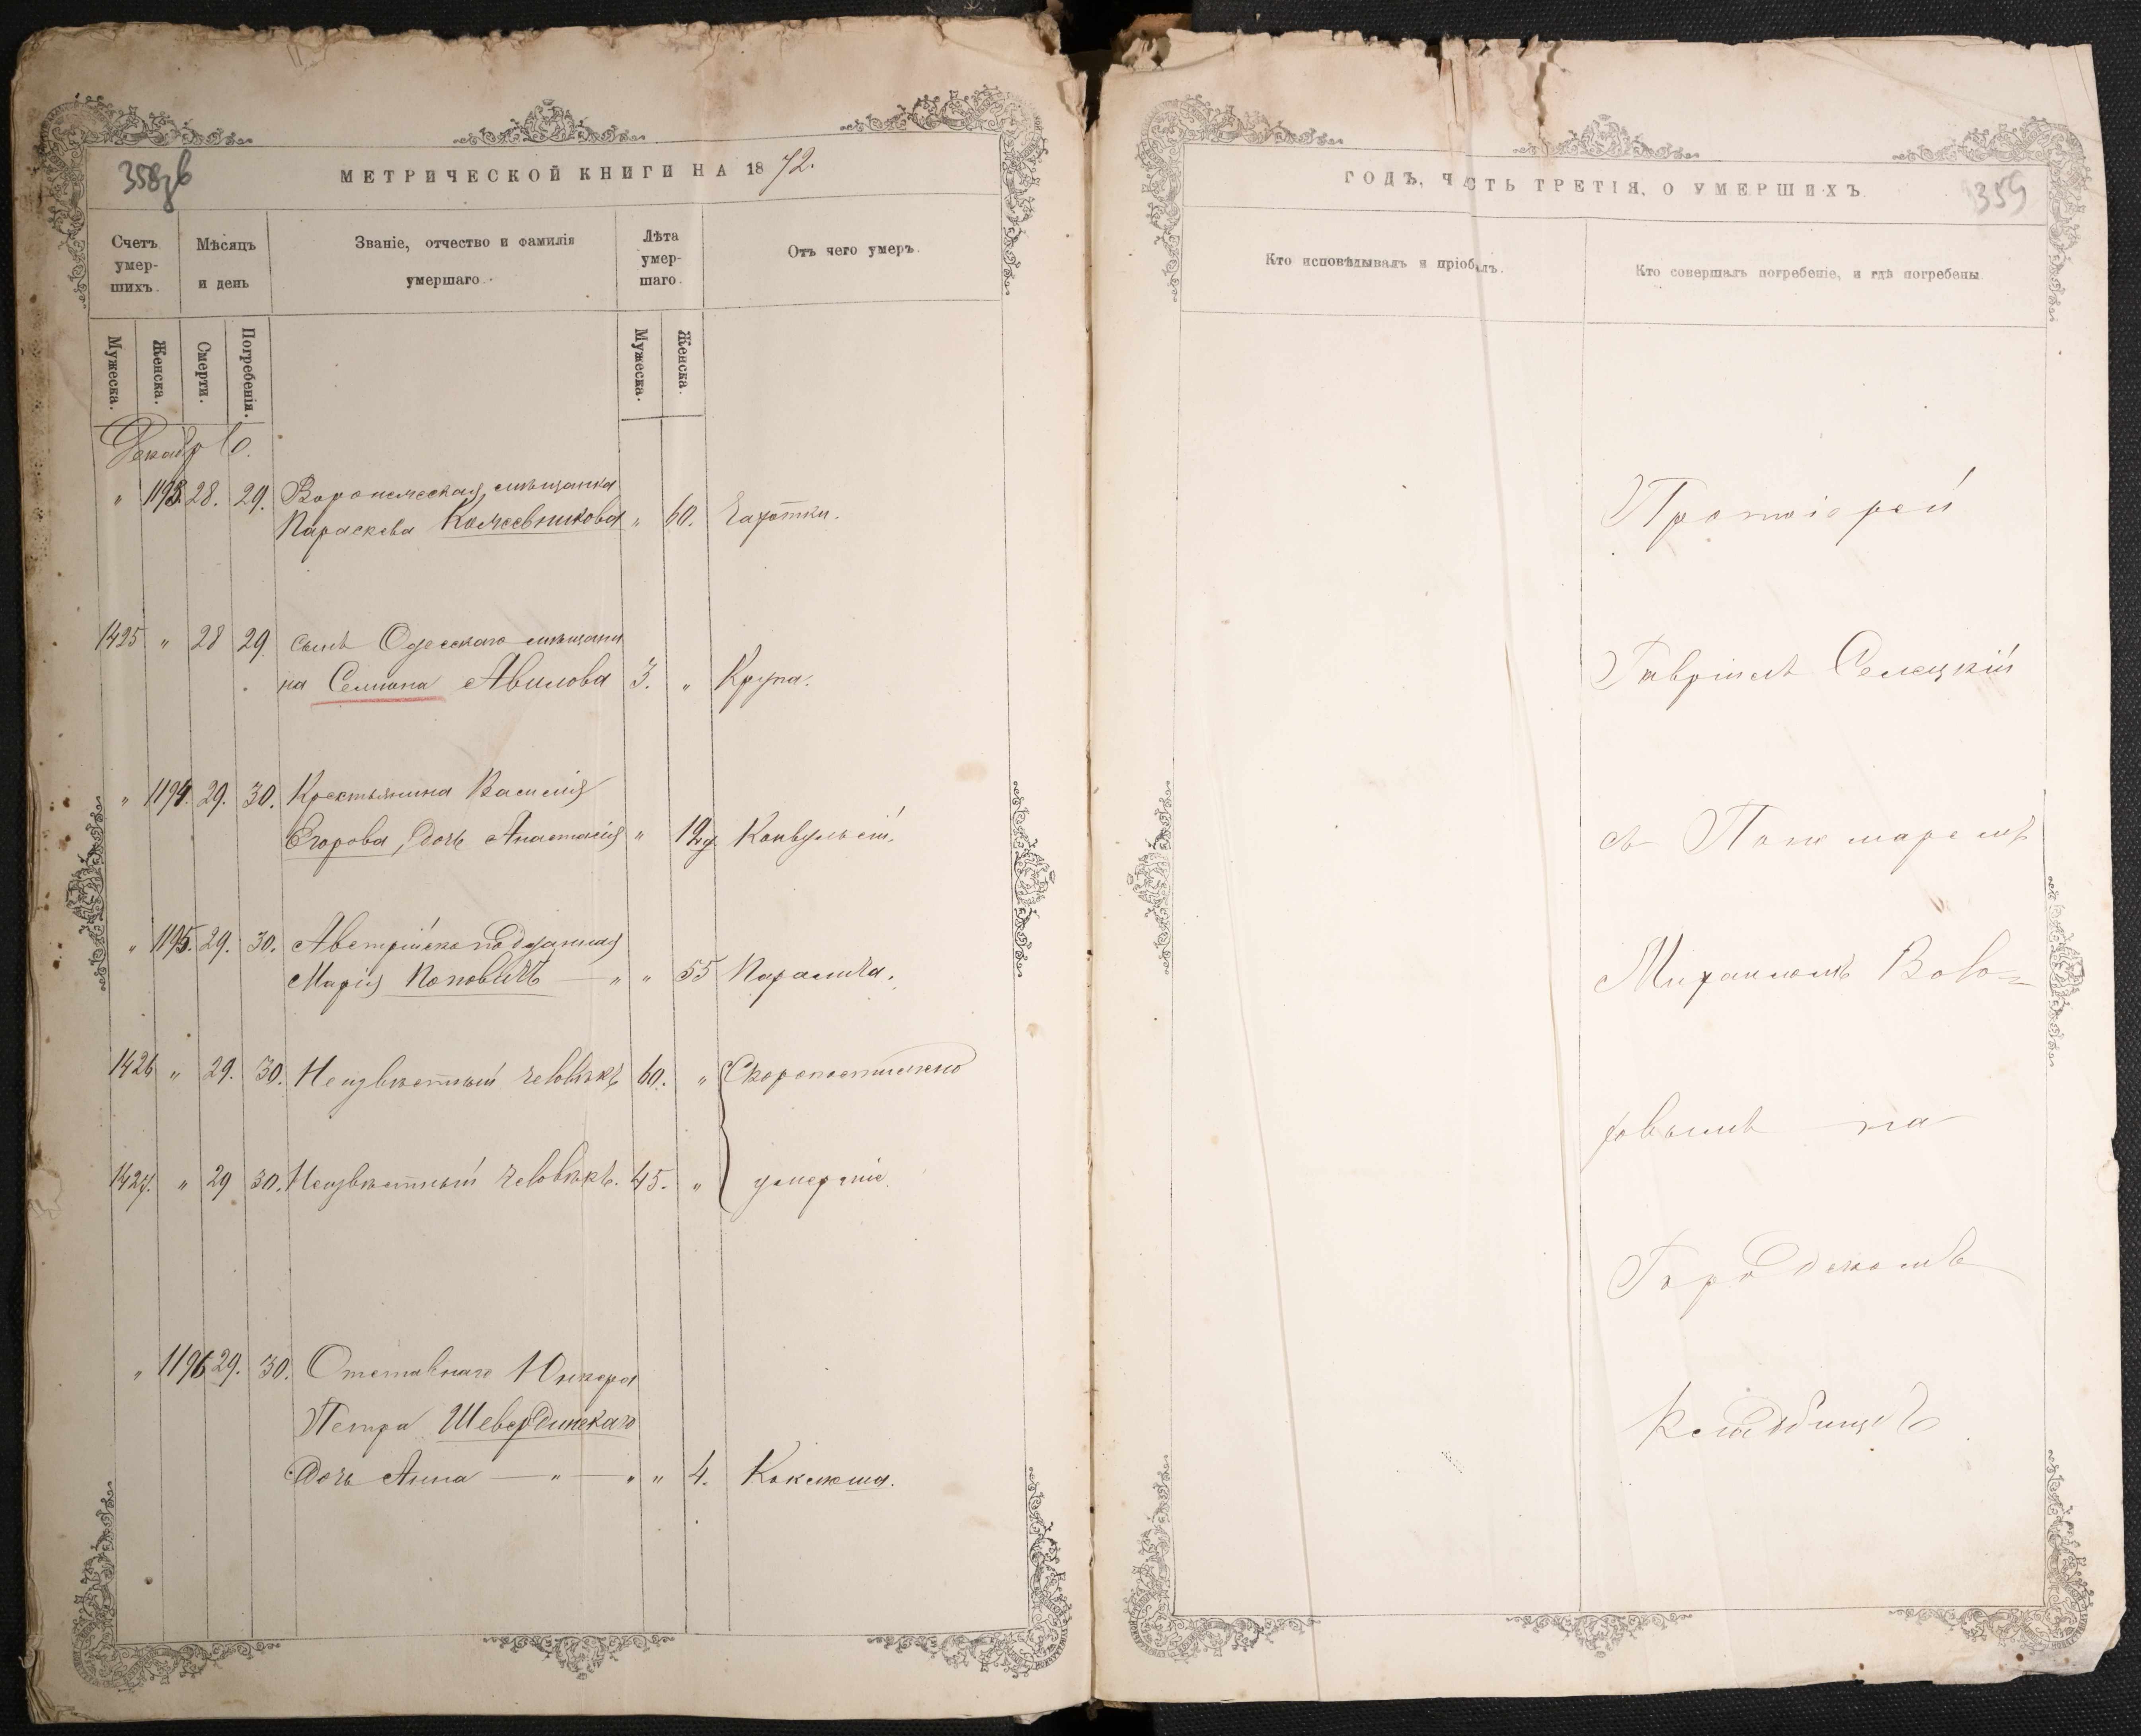 358зв
МЕТРИЧЕСКОЙ КНИГИ НА 1872.
Счетъ умер-шихъ.
Мѣсяцъ и день
Званіе, отчество и фамилія умершаго.
Лѣта умер-шаго.
Отъ чего умеръ.
Мужеска.
Женска.
Смерти.
Погребенія.
Мужеска.
Женска.
Декабрь.
" 1193 28. 29. Воронежская мѣщанка
Параскева Кожевникова " 60. Чахотки.
1425 " 28 29. сынъ Одесскаго мѣщани
на Семиона Авилова 3. " Крупа.
" 1194. 29. 30. Крестьянина Василія
Егорова, дочь Анастасія " 12 Конвульсій.
" 1195. 29. 30. Австрійско подданная
Марія Поповичъ — " " 55 Паралича.
1426 " 29. 30. Неизвѣстный человѣкъ 60. " Скоропостижно
1427. " 29 30. Неизвѣстный человѣкъ. 45. "
" 1196 29. 30. Отставнаго Юнкера
Петра Шевердинскаго
дочь Анна — " — " " 4. Коклюша.
ГОДЪ, ЧАСТЬ ТРЕТІЯ, О УМЕРШИХЪ.
359
Кто исповѣдывалъ и пріобщ.лъ.
Кто совершалъ погребеніе, и гдѣ погребены.
Протоіерей
Гавріилъ Селецкій
съ Пономаремъ
Михаиломъ Воло=
ховымъ на
Городскомъ
Кладбищѣ